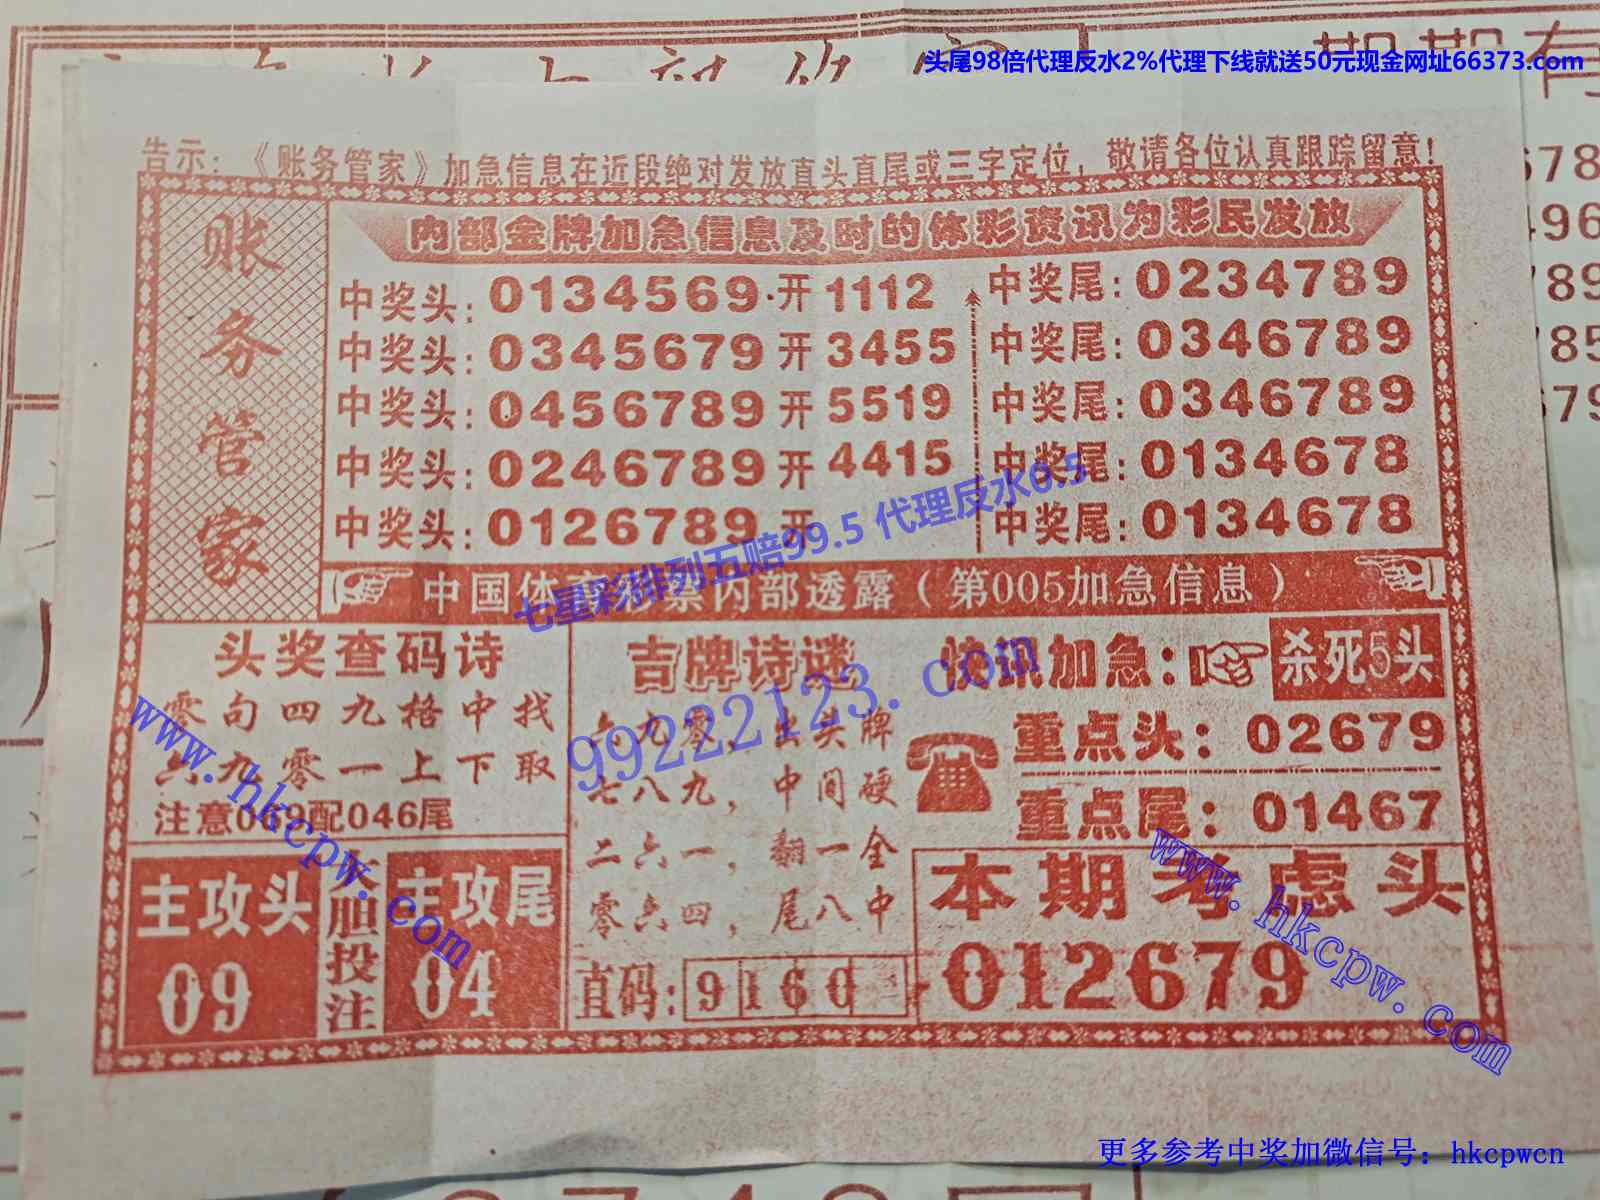 头尾98倍代理反水2%代理下线就送50元现金网址66373.com
告示：《账务管家》加急信息在近段绝对发放直头直尾或三字定位，敬请各位认真跟踪留意！
账务管家
内部金牌加急信息及时的体彩资讯为彩民发放
中奖头：0134569·开1112 中奖尾：0234789
中奖头：0345679开3455 中奖尾：0346789
中奖头：0456789开5519 中奖尾：0346789
中奖头：0246789开4415 中奖尾：0134678
中奖头：0126789开 中奖尾：0134678
七星彩排列五赔99.5 代理反水0.5
中国体育彩票内部透露（第005加急信息）
头奖查码诗
零句四九格中找
六九零一上下取
注意069配046尾
主攻头
09
大胆投注
主攻尾
04
吉牌诗谜
六九零，出头牌
七八九，中间硬
二六一，翻一全
零六四，尾八中
直码：9160
99222123.com
快讯加急：杀死5头
重点头：02679
重点尾：01467
本期考虑头
012679
www.hkcpw.com
www.hkcpw.com
更多参考中奖加微信号：hkcpwcn